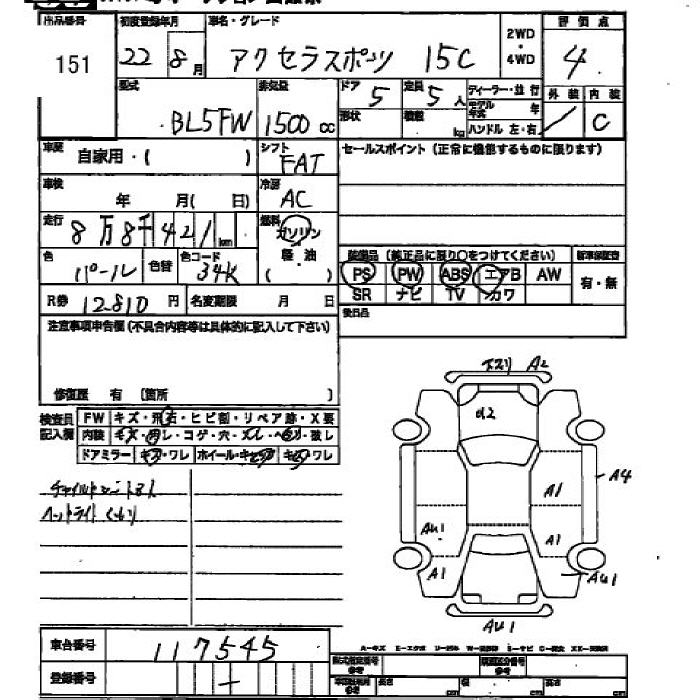 出品番号 初度登録年月 車名・グレード 2WD・4WD 評価点
151 22 8月 アクセラスポーツ 15C 4
型式 排気量 ドア 定員 ディーラー・並行 外装 内装
BL5FW 1500 cc 5 5人 モデル年式 年 C
形状 積載 kg ハンドル 左・右
車歴 自家用・( ) シフト FAT セールスポイント (正常に機能するものに限ります)
車検 年 月( 日) 冷房 AC
走行 8万8千421 km 燃料 ガソリン 軽・油 ( )
色 パール 色替 色コード 34K
装備品 (純正品に限り○をつけてください) 新車保証書
PS PW ABS エアB AW 有・無
SR ナビ TV カワ
R券 12,810 円 名変期限 月 日 後日品
注意事項申告欄 (不具合内容等は具体的に記入して下さい)
修復歴 有 〔箇所 〕
検査員記入欄 FW キズ・飛石・ヒビ割・リペア跡・X要
内装 キズ・汚レ・コゲ・穴・スレ・ヘタリ・破レ
ドアミラー キズ・ワレ ホイール・キャップ キズ・ワレ
ヘッドライト くもり
スリ A2
A4
A1
AU1 A1
A1 AU1
AU1
車台番号 117545
登録番号 -
A-キズ
型式指定番号 類別区分番号
参考 長さ cm 幅 cm 高さ cm